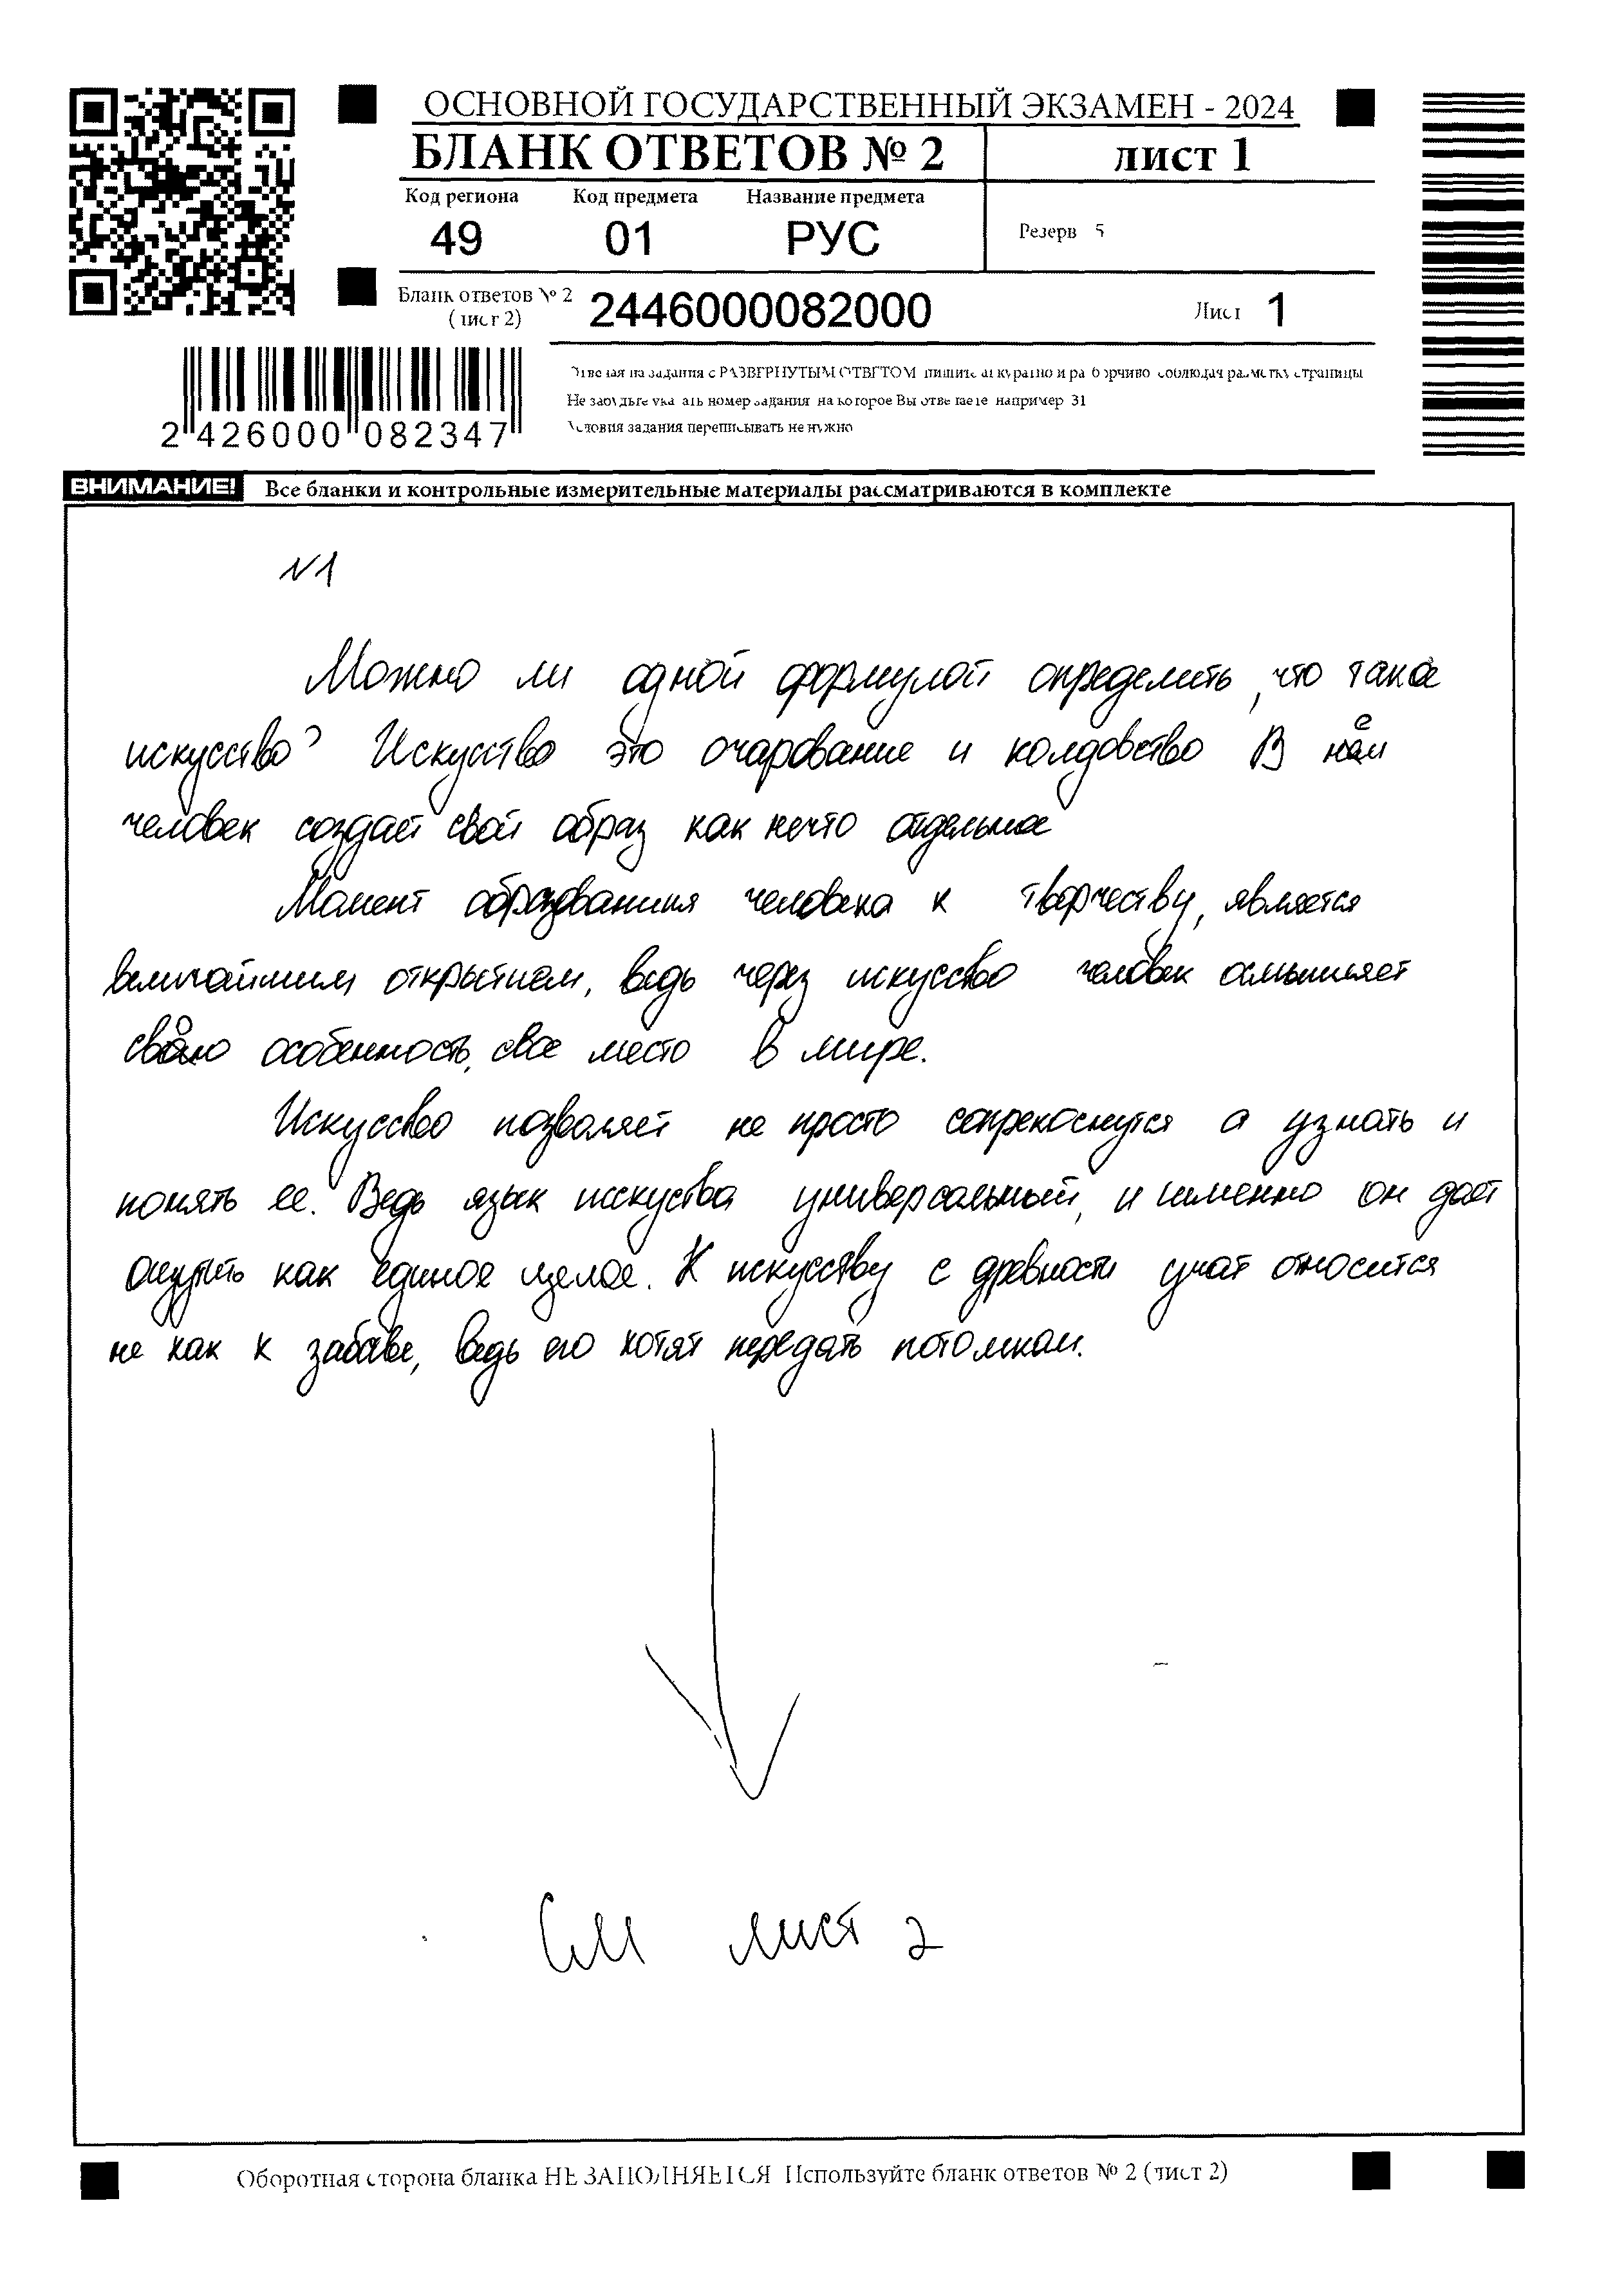 ОСНОВНОЙ ГОСУДАРСТВЕННЫЙ ЭКЗАМЕН - 2024
БЛАНК ОТВЕТОВ № 2
лист 1
Код региона Код предмета Название предмета
49 01 РУС
Резерв 5
Бланк ответов № 2
(лист 2)
2446000082000
Лист 1
2 426000 082347
Отвечая на задания с РАЗВЕРНУТЫМ ОТВЕТОМ пишите аккуратно и разборчиво соблюдая разметку страницы
Не забудьте указать номер задания на которое Вы отвечаете например 31
Условия задания переписывать не нужно
ВНИМАНИЕ! Все бланки и контрольные измерительные материалы рассматриваются в комплекте
N1
Можно ли одной формулой определить, что такое
искусство? Искуство это очарование и колдовство В нём
человек создаёт свой образ как нечто отдельное
Момент образованния человека к творчеству, является
величайшим открытием, ведь через искусство человек осмысляет
свою особенность, свое место в мире.
Искусство позволяет не просто сопрекоснутся а узнать и
понять ее. Ведь язык исскуства универсальный, и именно он даёт
ощутить как единое целое. К искусству с древности учат относится
не как к забаве, ведь его хотят передать потомкам.
См лист 2
Оборотная сторона бланка НЕ ЗАПОЛНЯЕТСЯ Используйте бланк ответов № 2 (лист 2)